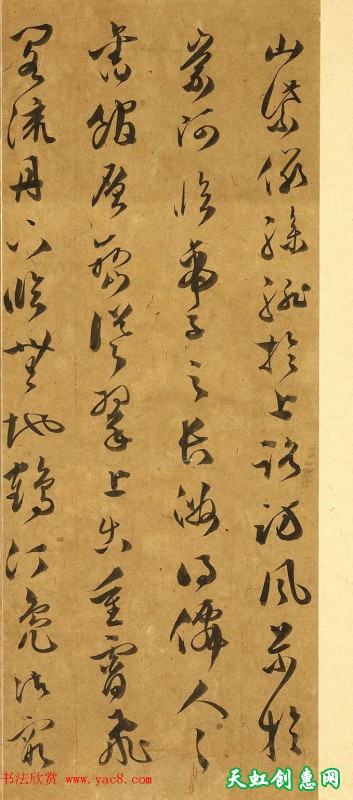 山紫儼驂騑於上路訪風景於
崇阿臨帝子之長洲得僊人之
舊館層巒聳翠上出重霄飛
閣流丹下臨無地鶴汀鳧渚窮
书法欣赏 www.yac8.com
天虹创惠网